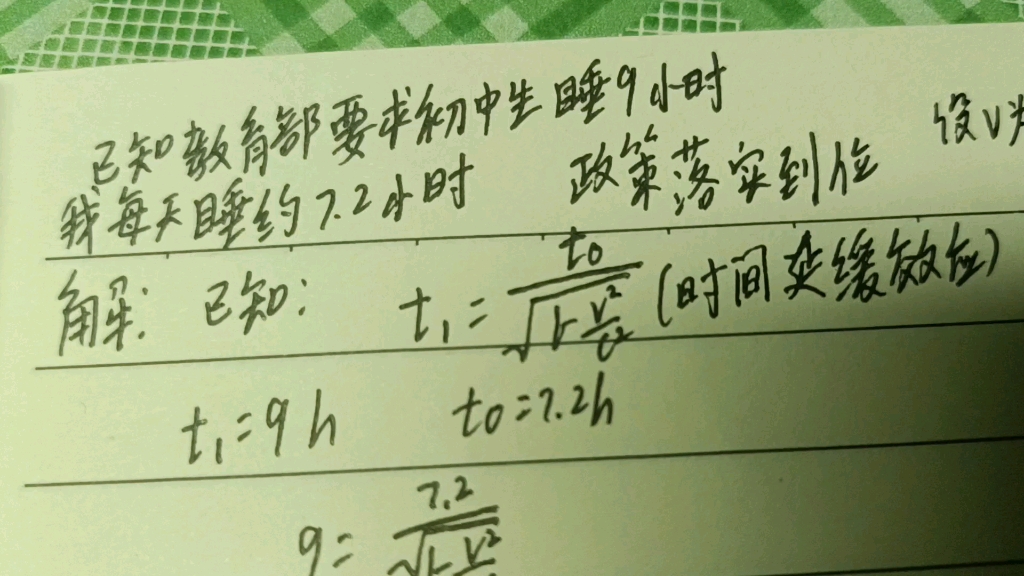 已知教育部要求初中生睡9小时
我每天睡约7.2小时 政策落实到位 设V为
解: 已知: t₁ = t₀/√(1-V²/C²) (时间延缓效应)
t₁=9h t₀=7.2h
9= 7.2/√(1-V²